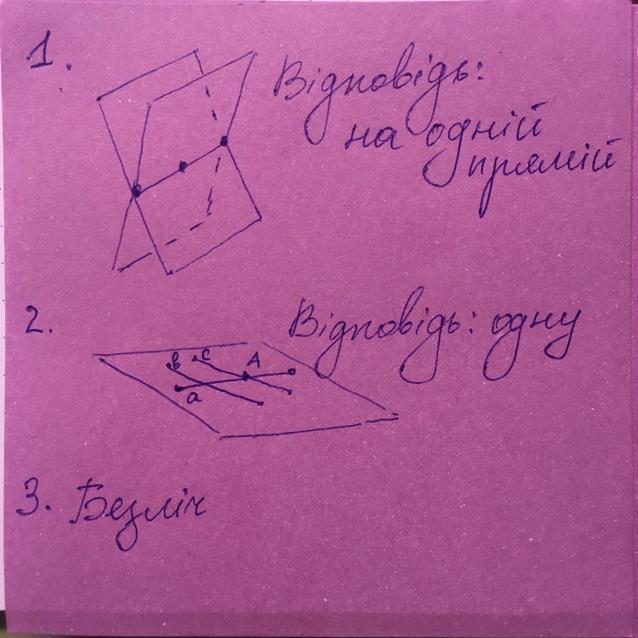 1.
Відповідь:
на одній
прямій
2.
Відповідь: одну
в с А
а
3. Безліч